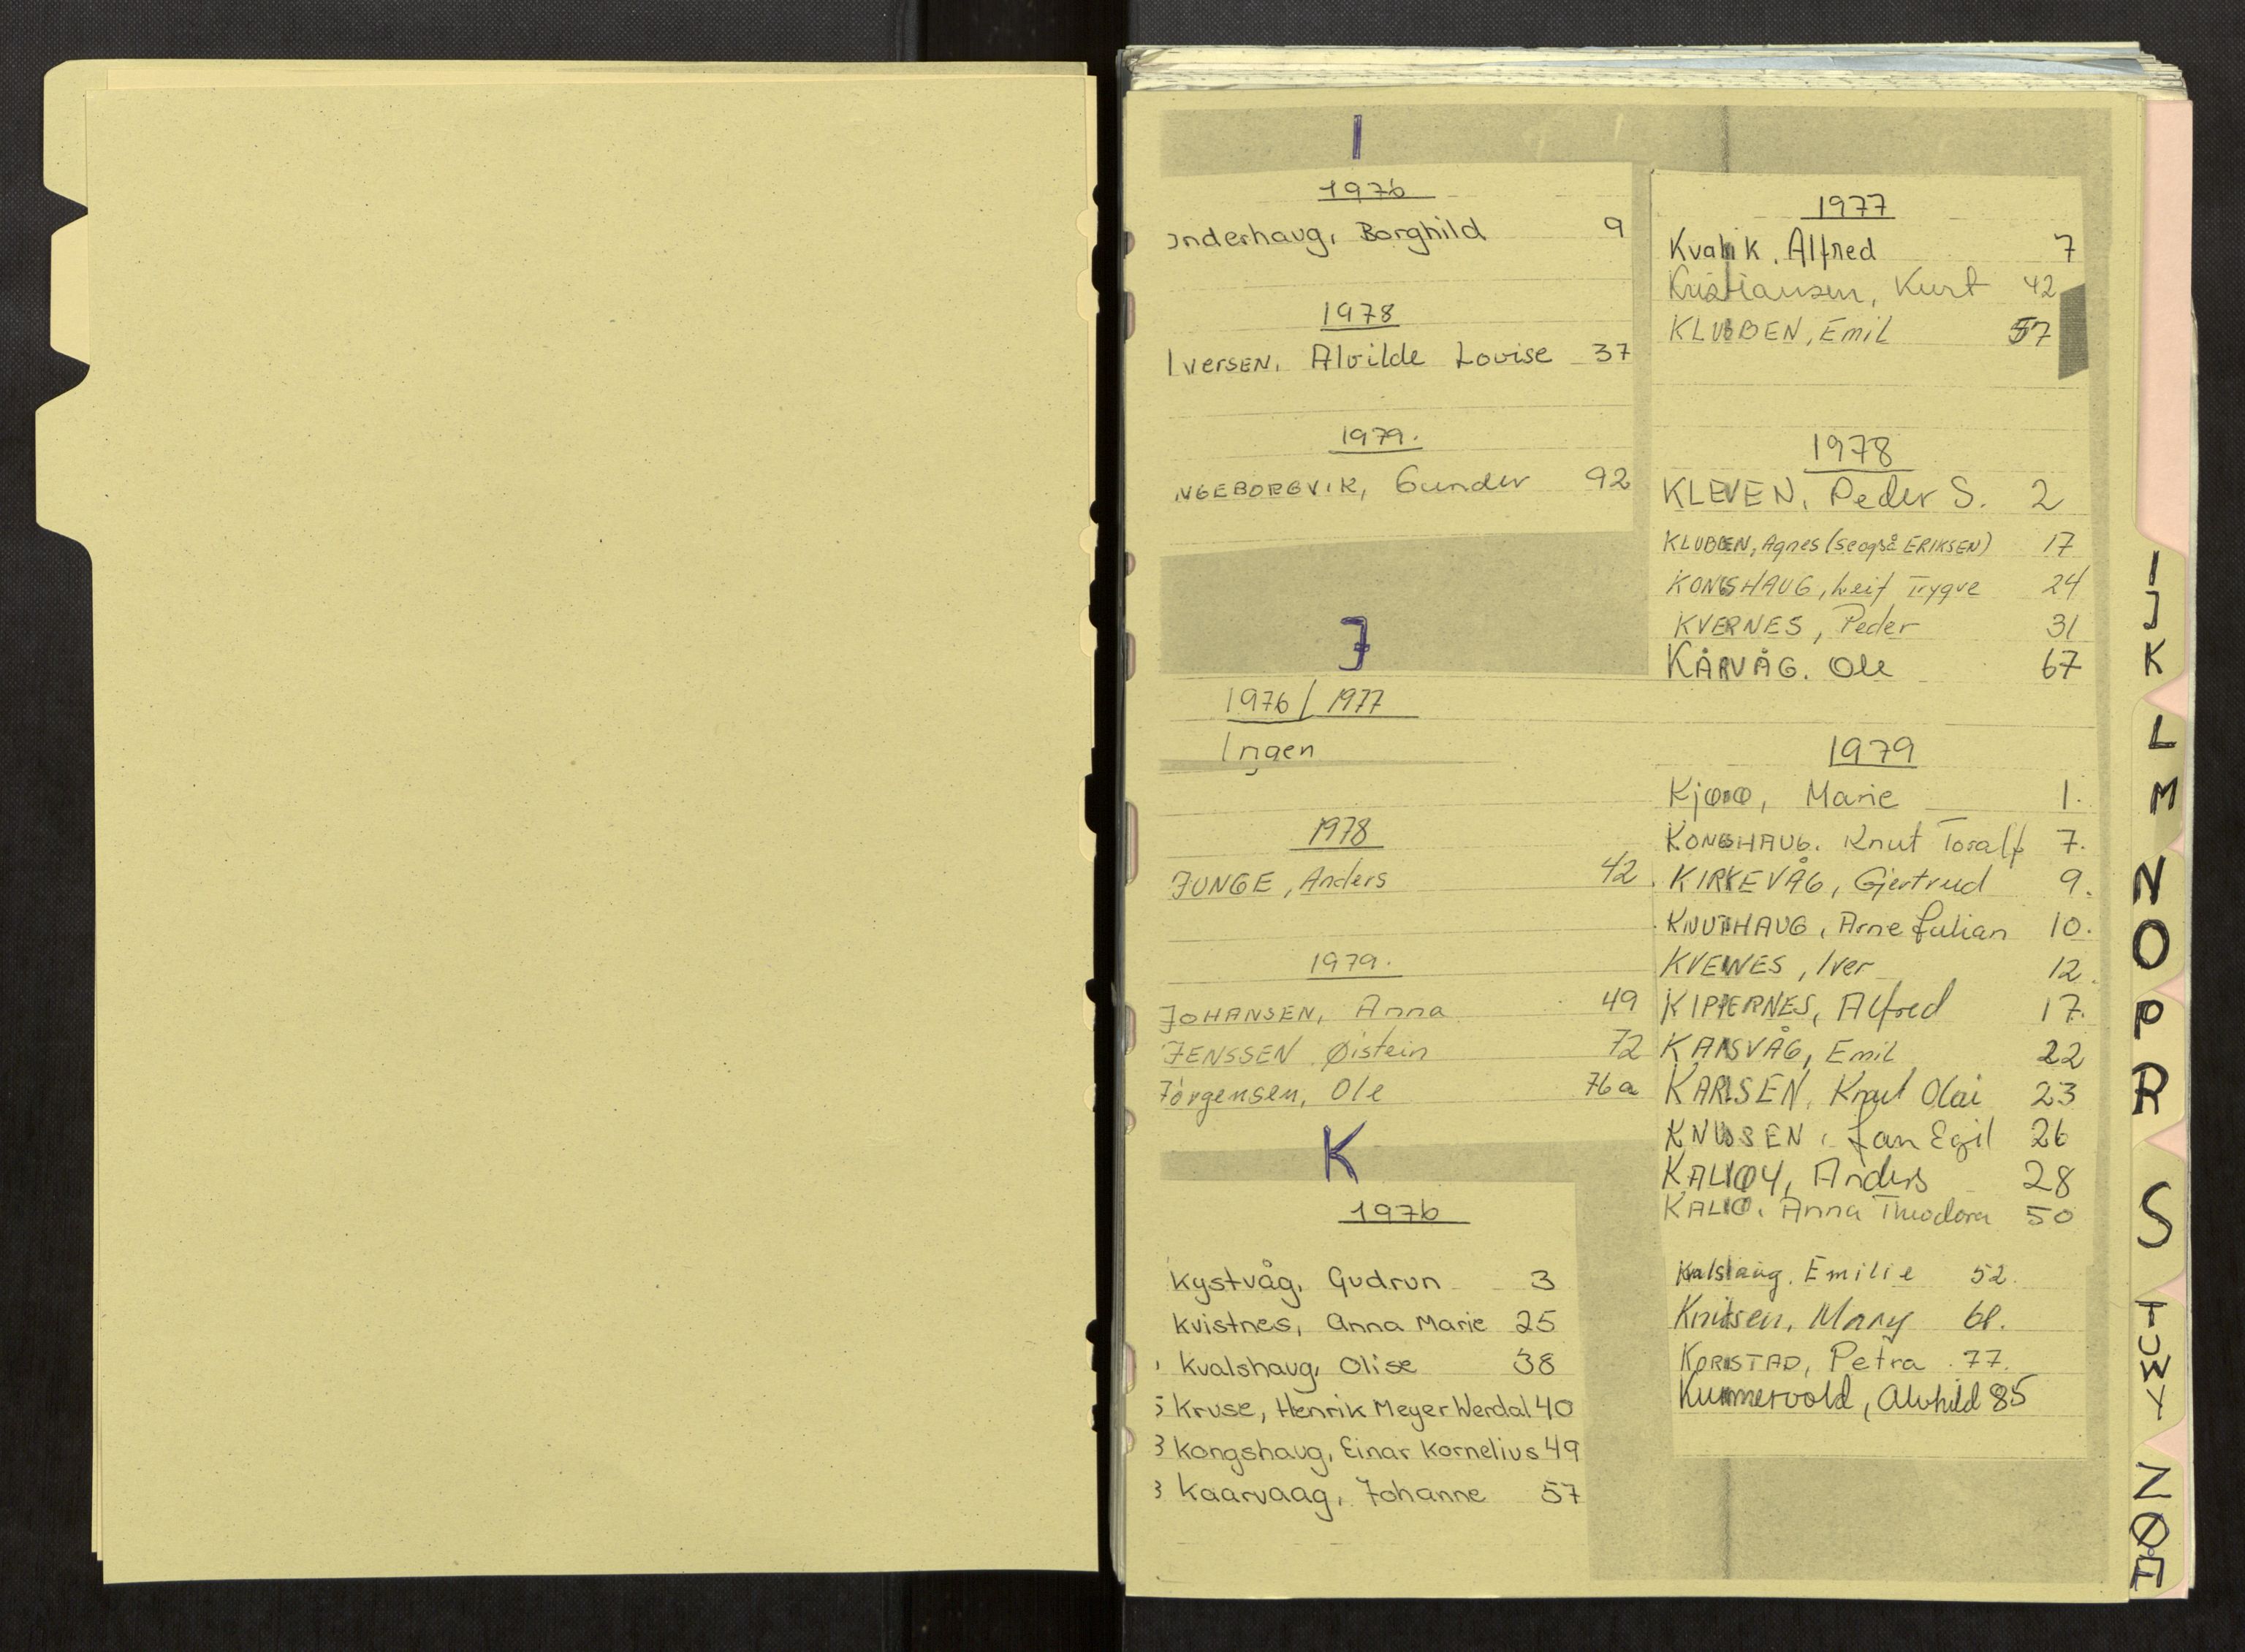 I
1976
Inderhaug, Borghild 9
1978
IversEN, Alvilde Lovise 37
1979.
NGEBORGVIK, Gunder 92
J
1976/1977
Ingen
1978
JUNGE, Anders 42
1979.
JOHANSEN, Anna 49
JENSSEN Øistein 72
Jörgensen, Ole 76a
K
1976
Kystvåg, Gudrun 3
Kvistnes, Anna Marie 25
Kvalshaug, Olise 38
Kruse, Henrik Meyer Werdal 40
Kongshaug, Einar Kornelius 49
Kaarvaag, Johanne 57
1977
Kvalvik, Alfred 7
Kristiansen, Kurt 42
KLUBBEN, Emil 57
1978
KLEVEN, Peder S. 2
KLUBBEN, Agnes (se også ERIKSEN) 17
KONGSHAUG, Leif Trygve 24
KVERNES, Peder 31
KÅRVÅG. Ole 67
1979
Marie 1.
KONGSHAUG. Knut Toralf 7.
KIRKEVÅG, Gjertrud 9.
KNUTHAUG, Arne Julian 10.
Iver 12.
Alfred 17.
KARSVÅG, Emil 22
KARLSEN, Knut Olai 23
KNUDSEN, Jan Egil 26
Anders 28
Anna Theodora 50
Emilie 52.
Knutsen, Mary 68.
KORSTAD, Petra 77.
Kummervold, Alvhild 85
I
J
K
L
M
N
O
P
R
S
T
U
W
Y
Z
Ø
Å